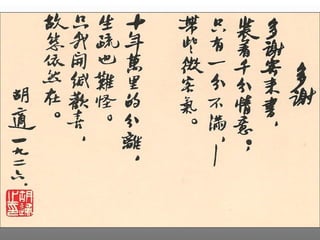 多謝
多謝寄來書,
裝着千分情意。
只有一分不滿,—
帶些微客氣。
十年萬里的分離,
生疏也難怪。
只我開緘歡喜,
故態依然在。
胡適 一九二六.
胡適之印